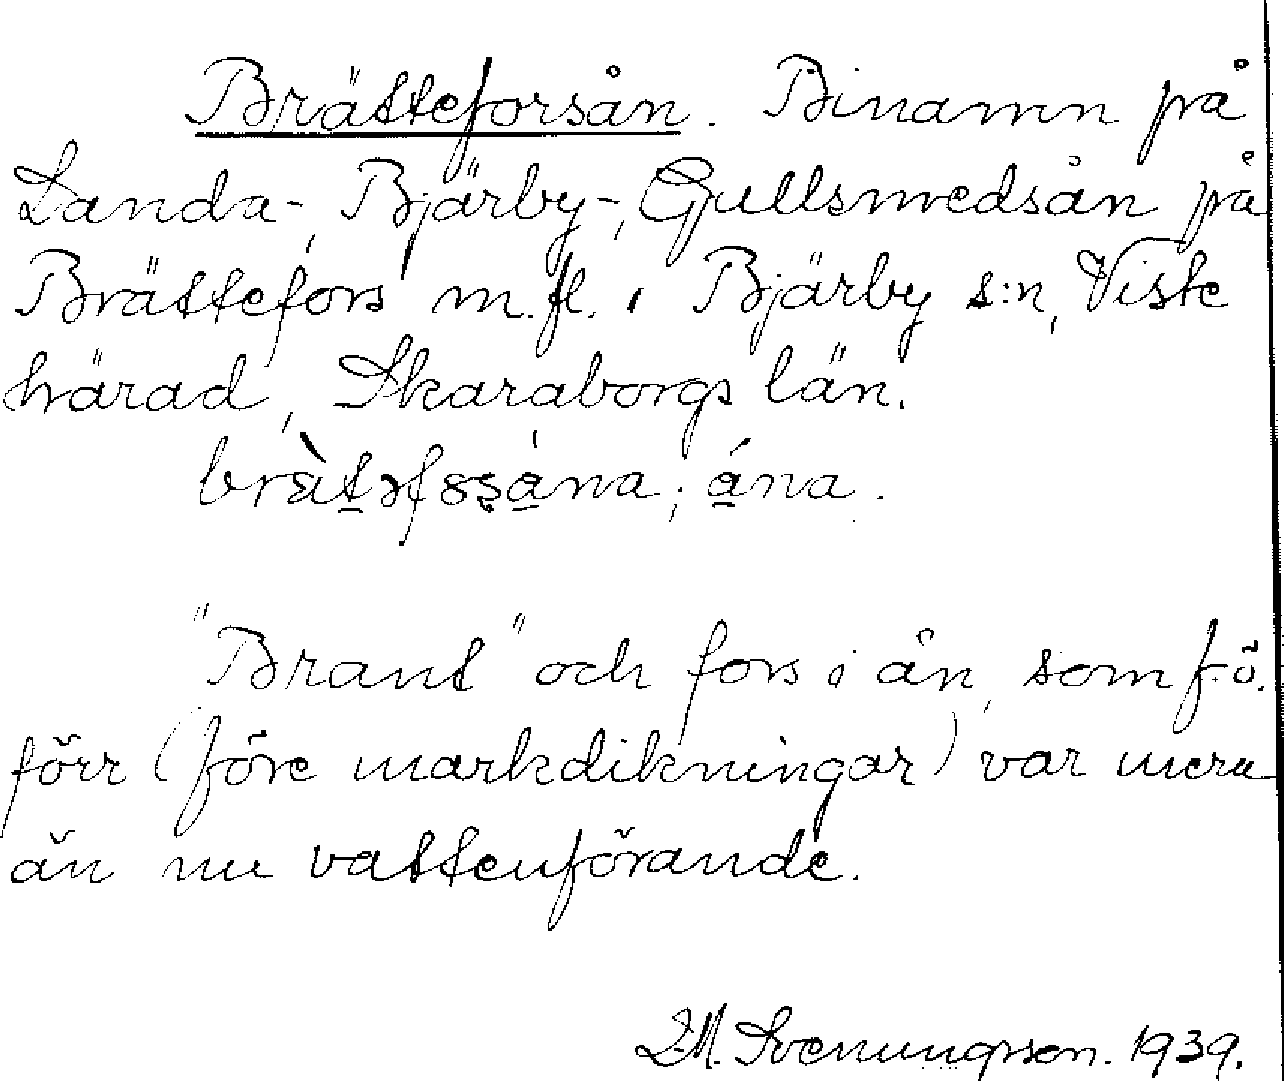 Brätteforsån. Binamn på
Landa-, Bjärby-, Gullsmedsån på
Brättefors m.fl. i Bjärby s:n, Viste
härad, Skaraborgs län.
"Brant" och fors i ån, som f.ö.
förr (före markdikningar) var mera
än nu vattenförande.
Svenungsson. 1939.